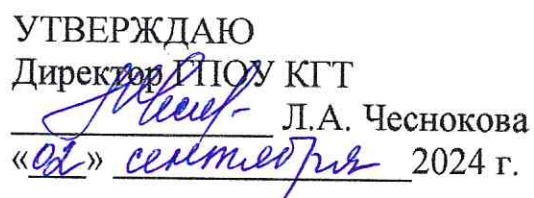 УТВЕРЖДАЮ
Директор ГПОУ КГТ
Л.А. Чеснокова
«02» сентября 2024 г.